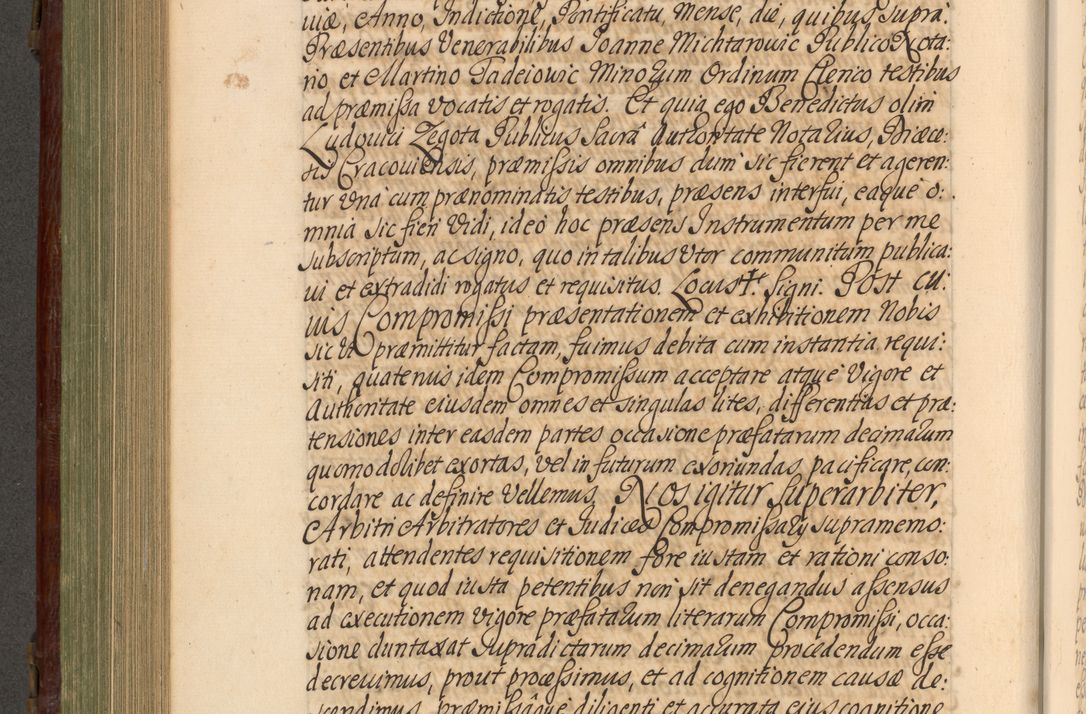 uiæ, Anno, Indictione, Pontificatu, Mense, die, quibus supra.
Præsentibus Venerabilibus Joanne Michtarowic Publico Nota:
rio et Martino Tadeiowic Minorum Ordinum Clerico testibus
ad præmissa vocatis et rogatis. Et quia ego Benedictus olim
Ludouici Zegota Publicus Sacra Authoritate Notarius, Diæce:
sis Cracouiensis, præmissis omnibus dum sic fierent et ageren:
tur vna cum prænominatis testibus, præsens interfui, eaque o:
mnia sic fieri vidi, ideo hoc præsens Instrumentum per me
subscriptum, ac signo, quo in talibus vtor communitum publica:
ui et extradidi rogatus et requisitus. Locus ✝. Signi. Post cu:
uis Compromissi præsentationem et exhibitionem Nobis
sic vt præmittitur factam, fuimus debita cum instantia requi:
siti, quatenus idem Compromissum acceptare atque vigore et
Authoritate eiusdem omnes et singulas lites, differentias et præ:
tensiones inter easdem partes occasione præfatarum decimarum
quomodolibet exortas, vel in futurum exoriundas, pacificare, con:
cordare ac definire vellemus. Nos igitur Superarbiter,
Arbitri Arbitratores et Iudices Compromissarij supramemo:
rati, attendentes requisitionem fore iustam et rationi conso:
nam, et quod iusta petentibus non sit denegandus assensus
ad executionem vigore præfatarum literarum Compromissi, occa:
sione duntaxat supradictarum decimarum procedendum esse
decreuimus, prout processimus, et ad cognitionem causæ de:
scendimus, præmissâque diligenti et accurata eius cognitione